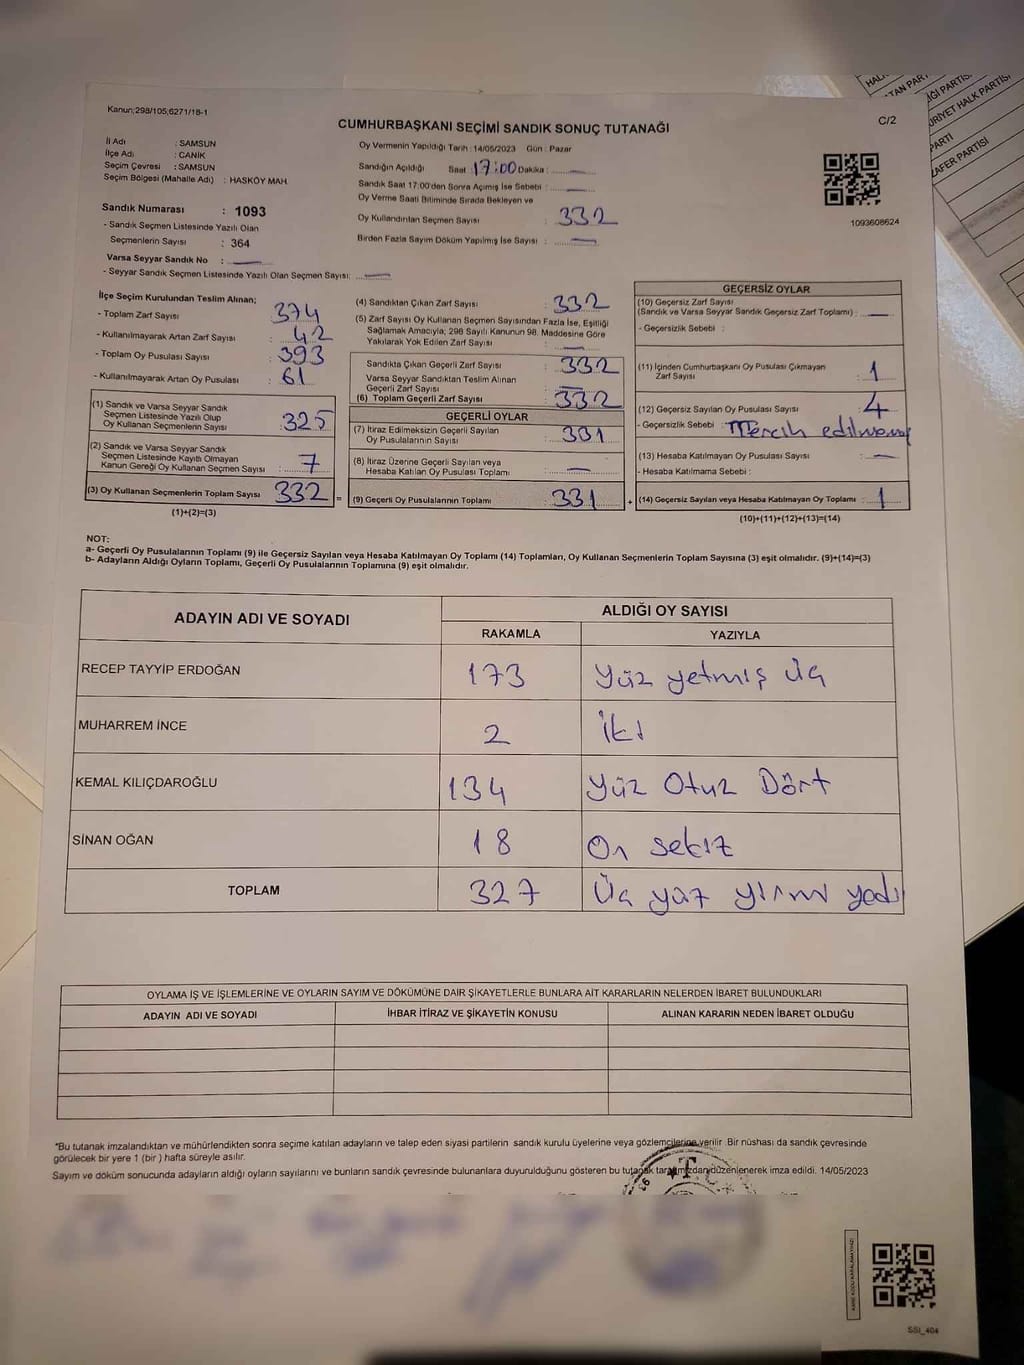 Kanun;298/105;6271/18-1
CUMHURBAŞKANI SEÇİMİ SANDIK SONUÇ TUTANAĞI
C/2
İl Adı : SAMSUN
İlçe Adı : CANİK
Seçim Çevresi : SAMSUN
Seçim Bölgesi (Mahalle Adı) : HASKÖY MAH.
Sandık Numarası : 1093
- Sandık Seçmen Listesinde Yazılı Olan
Seçmenlerin Sayısı : 364
Varsa Seyyar Sandık No : —
- Seyyar Sandık Seçmen Listesinde Yazılı Olan Seçmen Sayısı: —
Oy Vermenin Yapıldığı Tarih :14/05/2023 Gün : Pazar
Sandığın Açıldığı Saat :17:00 Dakika : —
Sandık Saat 17:00'den Sonra Açılmış İse Sebebi : —
Oy Verme Saati Bitiminde Sırada Bekleyen ve
Oy Kullandırılan Seçmen Sayısı : 332
Birden Fazla Sayım Döküm Yapılmış İse Sayısı : —
1093608624
İlçe Seçim Kurulundan Teslim Alınan;
- Toplam Zarf Sayısı : 374
- Kullanılmayarak Artan Zarf Sayısı : 42
- Toplam Oy Pusulası Sayısı : 393
- Kullanılmayarak Artan Oy Pusulası : 61
(1) Sandık ve Varsa Seyyar Sandık
Seçmen Listesinde Yazılı Olup
Oy Kullanan Seçmenlerin Sayısı : 325
(2) Sandık ve Varsa Seyyar Sandık
Seçmen Listesinde Kayıtlı Olmayan
Kanun Gereği Oy Kullanan Seçmen Sayısı : 7
(3) Oy Kullanan Seçmenlerin Toplam Sayısı : 332 =
(1)+(2)=(3)
(4) Sandıktan Çıkan Zarf Sayısı : 332
(5) Zarf Sayısı Oy Kullanan Seçmen Sayısından Fazla İse, Eşitliği
Sağlamak Amacıyla; 298 Sayılı Kanunun 98. Maddesine Göre
Yakılarak Yok Edilen Zarf Sayısı : —
Sandıkta Çıkan Geçerli Zarf Sayısı : 332
Varsa Seyyar Sandıktan Teslim Alınan
Geçerli Zarf Sayısı : —
(6) Toplam Geçerli Zarf Sayısı : 332
GEÇERLİ OYLAR
(7) İtiraz Edilmeksizin Geçerli Sayılan
Oy Pusulalarının Sayısı : 331
(8) İtiraz Üzerine Geçerli Sayılan veya
Hesaba Katılan Oy Pusulası Toplamı : —
(9) Geçerli Oy Pusulalarının Toplamı : 331 +
GEÇERSİZ OYLAR
(10) Geçersiz Zarf Sayısı
(Sandık ve Varsa Seyyar Sandık Geçersiz Zarf Toplamı) : —
- Geçersizlik Sebebi :
(11) İçinden Cumhurbaşkanı Oy Pusulası Çıkmayan
Zarf Sayısı : 1
(12) Geçersiz Sayılan Oy Pusulası Sayısı : 4
- Geçersizlik Sebebi : Mercih
(13) Hesaba Katılmayan Oy Pusulası Sayısı : —
- Hesaba Katılmama Sebebi :
(14) Geçersiz Sayılan veya Hesaba Katılmayan Oy Toplamı : 1
(10)+(11)+(12)+(13)=(14)
NOT:
a- Geçerli Oy Pusulalarının Toplamı (9) ile Geçersiz Sayılan veya Hesaba Katılmayan Oy Toplamı (14) Toplamları, Oy Kullanan Seçmenlerin Toplam Sayısına (3) eşit olmalıdır. (9)+(14)=(3)
b- Adayların Aldığı Oyların Toplamı, Geçerli Oy Pusulalarının Toplamına (9) eşit olmalıdır.
ADAYIN ADI VE SOYADI
ALDIĞI OY SAYISI
RAKAMLA YAZIYLA
RECEP TAYYİP ERDOĞAN 173 Yüz yetmiş üç
MUHARREM İNCE 2 İki
KEMAL KILIÇDAROĞLU 134 Yüz Otuz Dört
SİNAN OĞAN 18 On sekiz
TOPLAM 327 Üç yüz yirmi yedi
OYLAMA İŞ VE İŞLEMLERİNE VE OYLARIN SAYIM VE DÖKÜMÜNE DAİR ŞİKAYETLERLE BUNLARA AİT KARARLARIN NELERDEN İBARET BULUNDUKLARI
ADAYIN ADI VE SOYADI İHBAR İTİRAZ VE ŞİKAYETİN KONUSU ALINAN KARARIN NEDEN İBARET OLDUĞU
*Bu tutanak imzalandıktan ve mühürlendikten sonra seçime katılan adayların ve talep eden siyasi partilerin sandık kurulu üyelerine veya gözlemcilerine verilir. Bir nüshası da sandık çevresinde
görülecek bir yere 1 (bir ) hafta süreyle asılır.
Sayım ve döküm sonucunda adayların aldığı oyların sayılarını ve bunların sandık çevresinde bulunanlara duyurulduğunu gösteren bu tutanak tarafımızdan düzenlenerek imza edildi. 14/05/2023
SSI_404